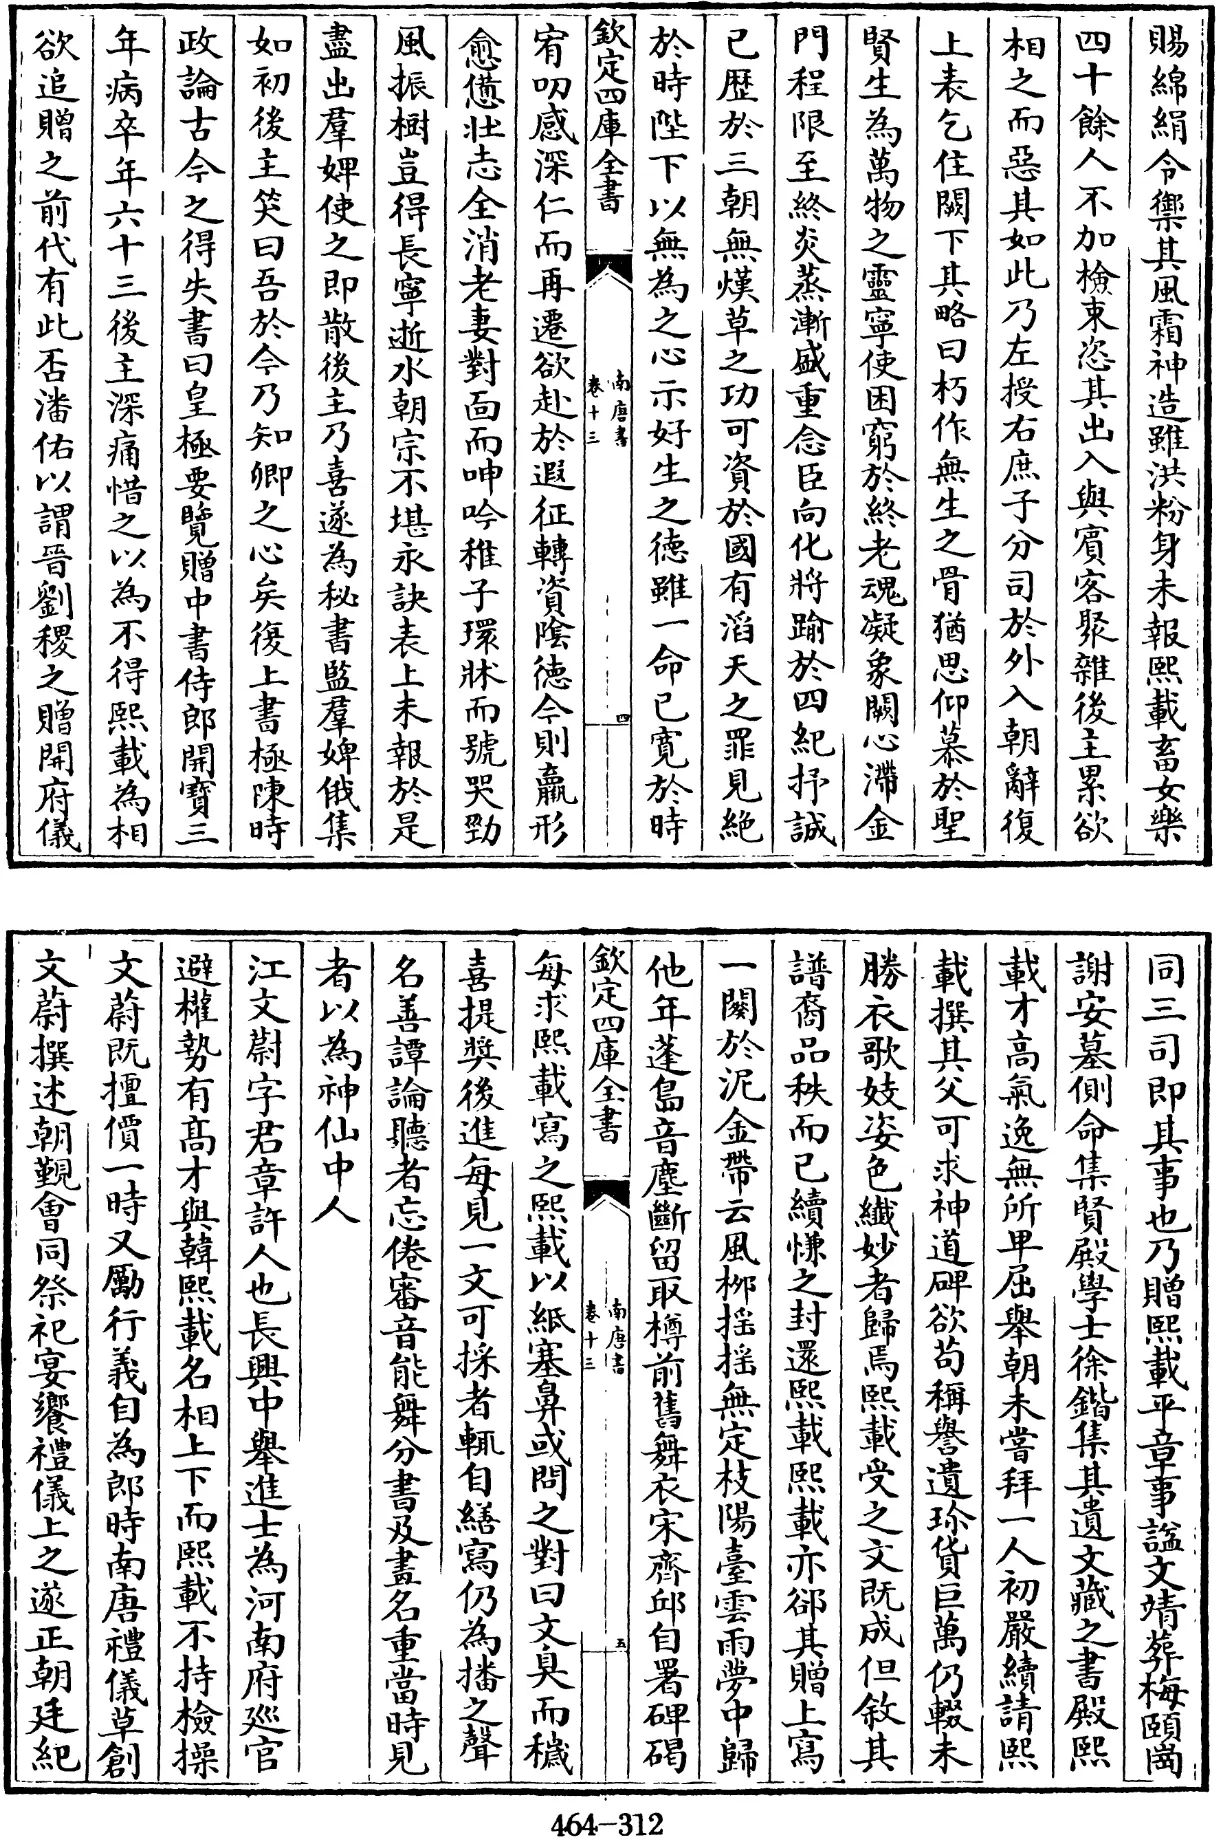 賜綿絹令禦其風霜神造雖洪粉身未報熙載畜女樂
四十餘人不加檢束恣其出入與賓客聚雜後主累欲
相之而惡其如此乃左授右庶子分司於外入朝辭復
上表乞住闕下其略曰朽作無生之骨猶思仰慕於聖
賢生為萬物之靈寧使困窮於終老魂凝象闕心滯金
門程限至終炎蒸漸盛重念臣向化將踰於四紀抒誠
已歷於三朝無熯草之功可資於國有滔天之罪見絶
於時陛下以無為之心示好生之德雖一命已寛於時
欽定四庫全書
南唐書
卷十三
四
宥叨感深仁而再遷欲赴於遐征轉資隂德今則羸形
愈憊壯志全消老妻對面而呻吟稚子環牀而號哭勁
風振樹豈得長寧逝水朝宗不堪永訣表上未報於是
盡出羣婢使之即散後主乃喜遂為秘書監羣婢俄集
如初後主笑曰吾於今乃知卿之心矣復上書極陳時
政論古今之得失書曰皇極要覽贈中書侍郎開寶三
年病卒年六十三後主深痛惜之以為不得熙載為相
欲追贈之前代有此否潘佑以謂晉劉稷之贈開府儀
同三司即其事也乃贈熙載平章事諡文靖葬梅頤崗
謝安墓側命集賢殿學士徐鍇集其遺文藏之書殿熙
載才高氣逸無所卑屈舉朝未嘗拜一人初嚴續請熙
載撰其父可求神道碑欲苟稱譽遺珍貨巨萬仍輟未
勝衣歌妓姿色纖妙者歸焉熙載受之文既成但敘其
譜裔品秩而已續慊之封還熙載熙載亦郤其贈上寫
一闋於泥金帶云風栁揺揺無定枝陽臺雲雨夢中歸
他年蓬島音塵斷留取樽前舊舞衣宋齊邱自署碑碣
欽定四庫全書
南唐書
卷十三
五
每求熙載寫之熙載以紙塞鼻或問之對曰文臭而穢
喜提奬後進每見一文可採者輒自繕寫仍為播之聲
名善譚論聽者忘倦審音能舞分書及畫名重當時見
者以為神仙中人
江文蔚字君章許人也長興中舉進士為河南府廵官
避權勢有髙才與韓熙載名相上下而熙載不持檢操
文蔚既擅價一時又勵行義自為郎時南唐禮儀草創
文蔚撰述朝覲會同祭祀宴饗禮儀上之遂正朝廷紀
464-312